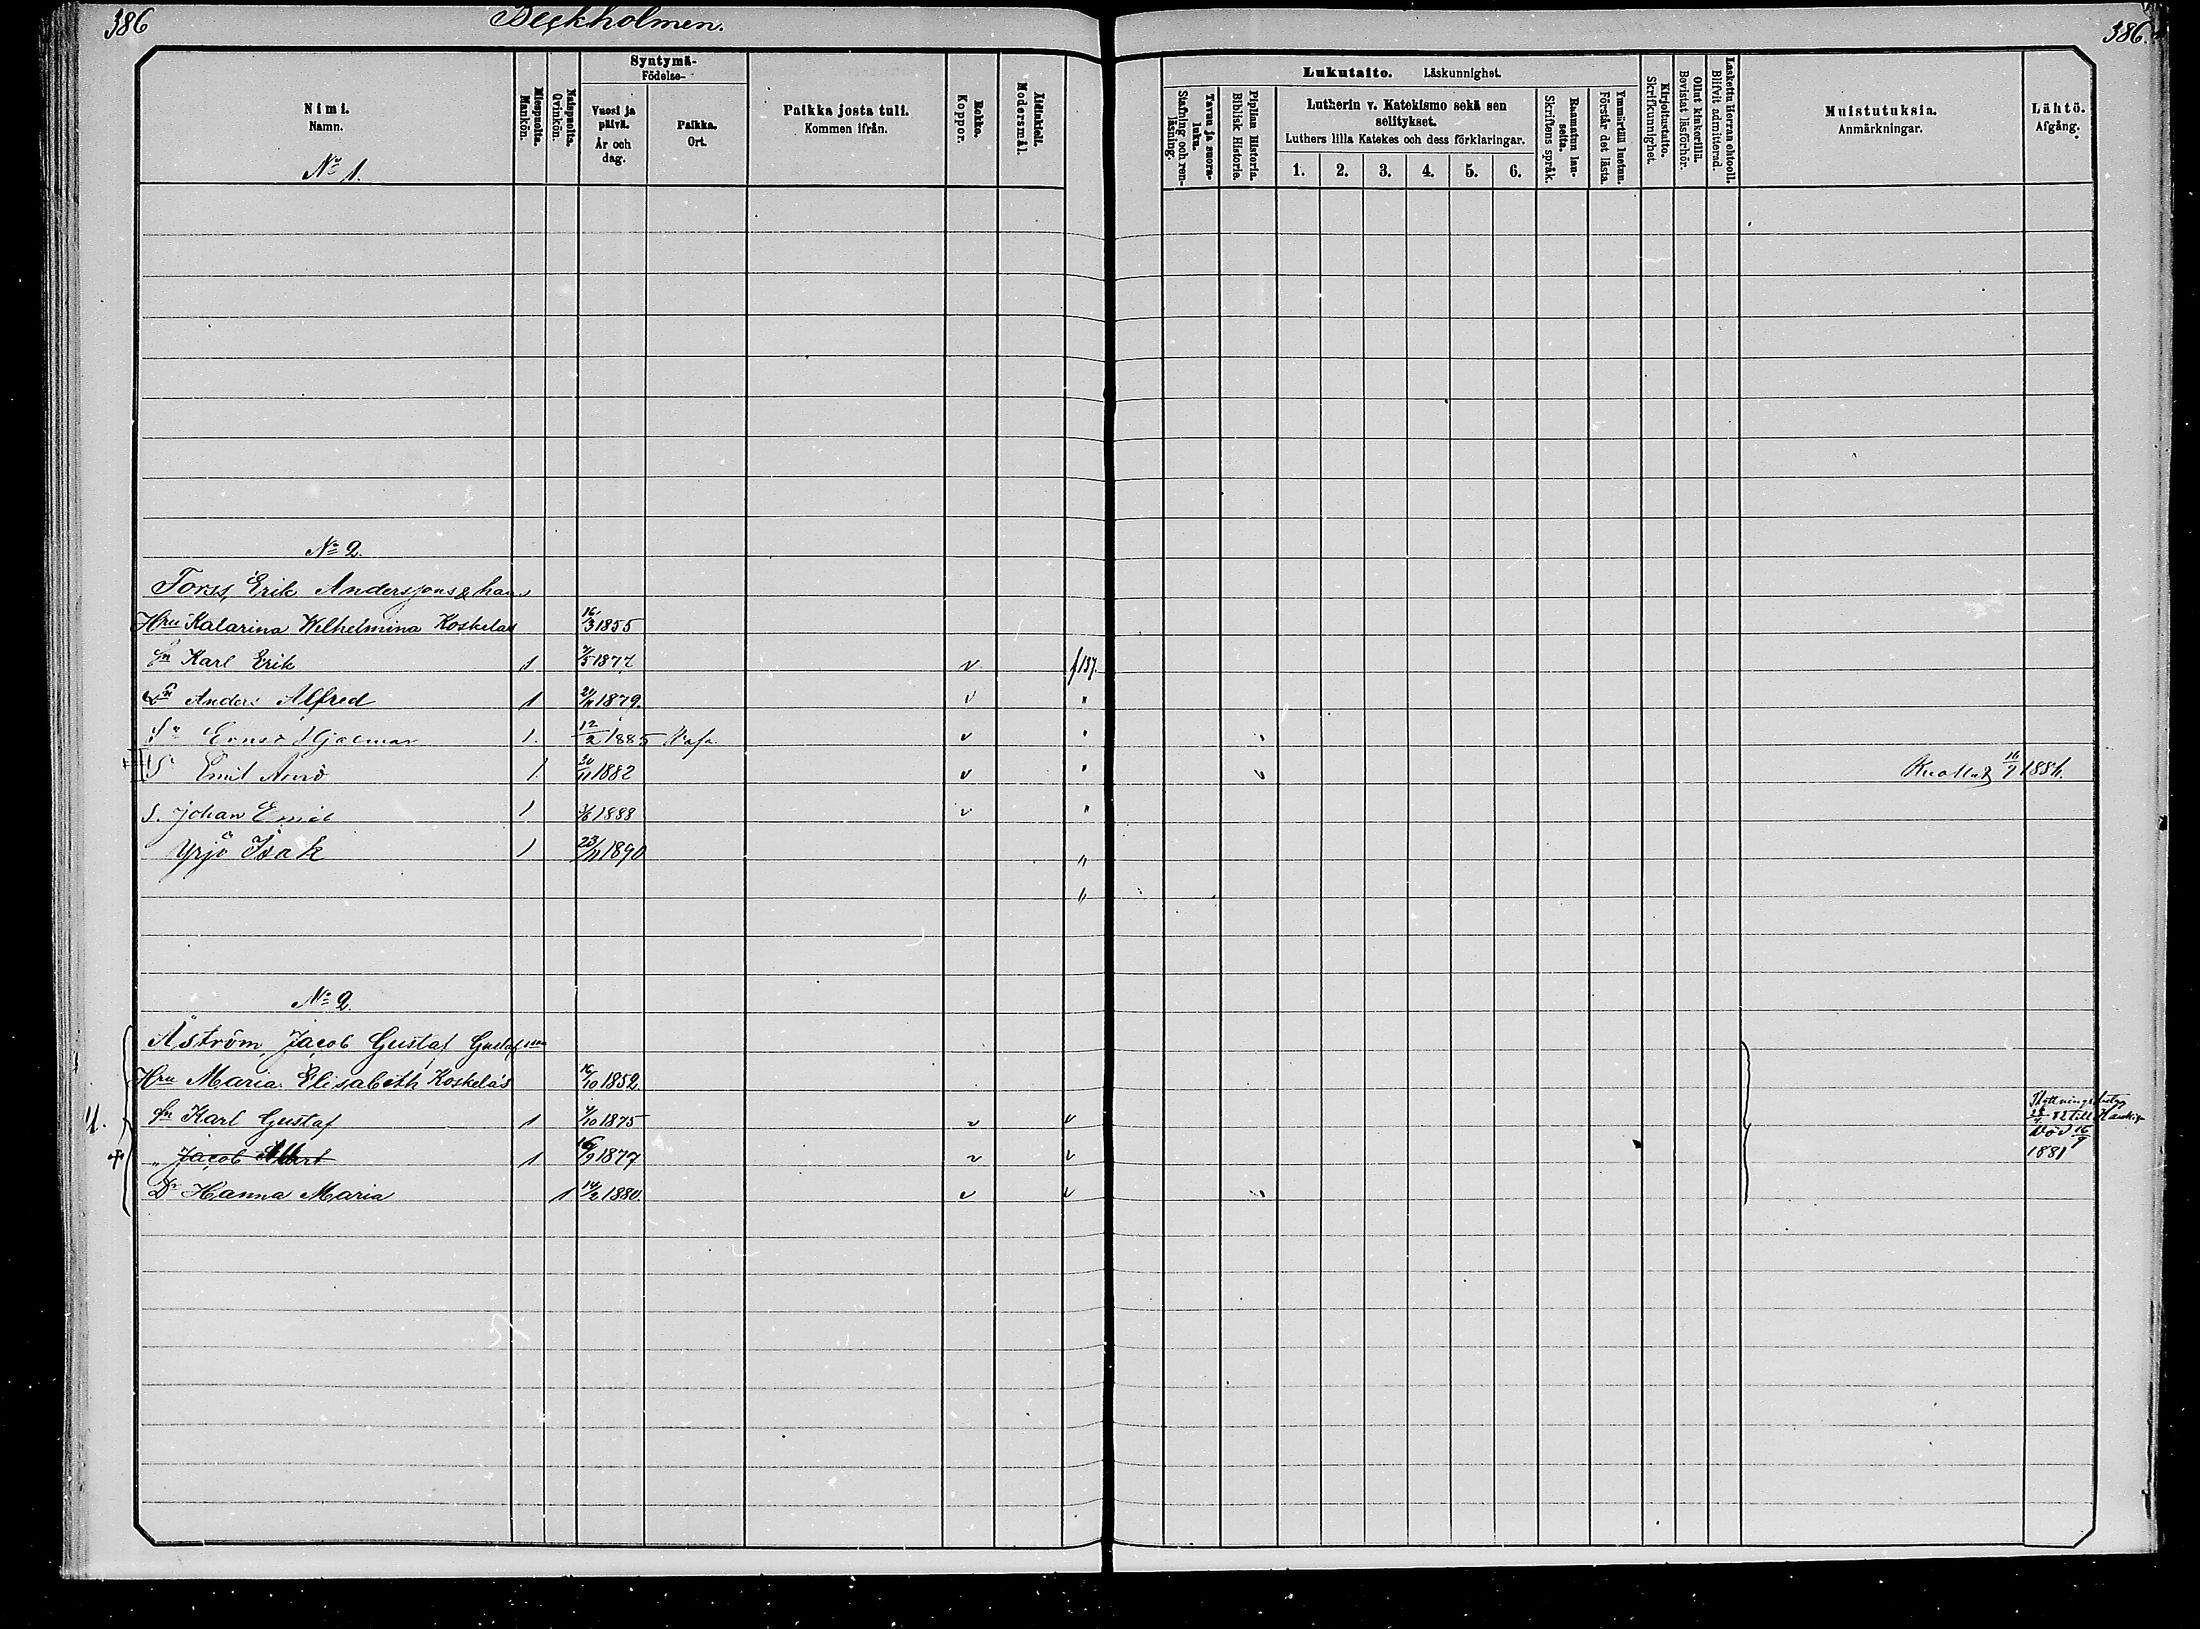 386
Beckholmen.
386.
Nimi.
Namn.
No 1.
Miespuolta.
Mankön.
Naispuolta.
Qvinkön.
Syntymä-
Födelse-
Vuosi ja
päivä.
År och
dag.
Paikka.
Ort.
Paikka josta tuli.
Kommen ifrån.
Rokko.
Koppor.
Äidinkieli.
Modersmål.
Lukutaito. Läskunnighet.
Tavuu ja suora-
luku.
Stafning och ren-
läsning.
Piplian Historia.
Biblisk Historie.
Lutherin v. Katekismo sekä sen
selitykset.
Luthers lilla Katekes och dess förklaringar.
1. 2. 3. 4. 5. 6.
Raamatun lau-
seita.
Skriftens språk.
Ymmärtää luetun.
Förstår det lästa.
Kirjoitustaito.
Skrifkunnighet.
Ollut kinkerillä.
Bevistat läsförhör.
Laskettu Herran ehtooll.
Blifvit admitterad.
Muistutuksia.
Anmärkningar.
Lähtö.
Afgång.
No 2.
Torss, Erik Anderssons & hans
Hru Katarina Wilhelmina Koskelas 16/3 1855
Sn Karl Erik 1 7/5 1877 v f 137.
Sn Anders Alfred 1 21/11 1879. v "
Sn Ernst Hjalmar 1. 12/2 1885 v "
S Emil Arvid 1. 20/11 1882 v " v 16/9 1884.
S. Johan Emil 1 3/6 1888 v "
Yrjö Isak 1 23/11 1890 "
"
No 2.
Åström, Jacob Gustaf Gustafsson
Hru Maria Elisabeth Koskela's 16/10 1852
Sn Karl Gustaf 1 4/10 1875 v v
" Jacob Albert 1 16/9 1877 v v
Död 16/9
1881
Dr Hanna Maria 1 14/2 1880. v v